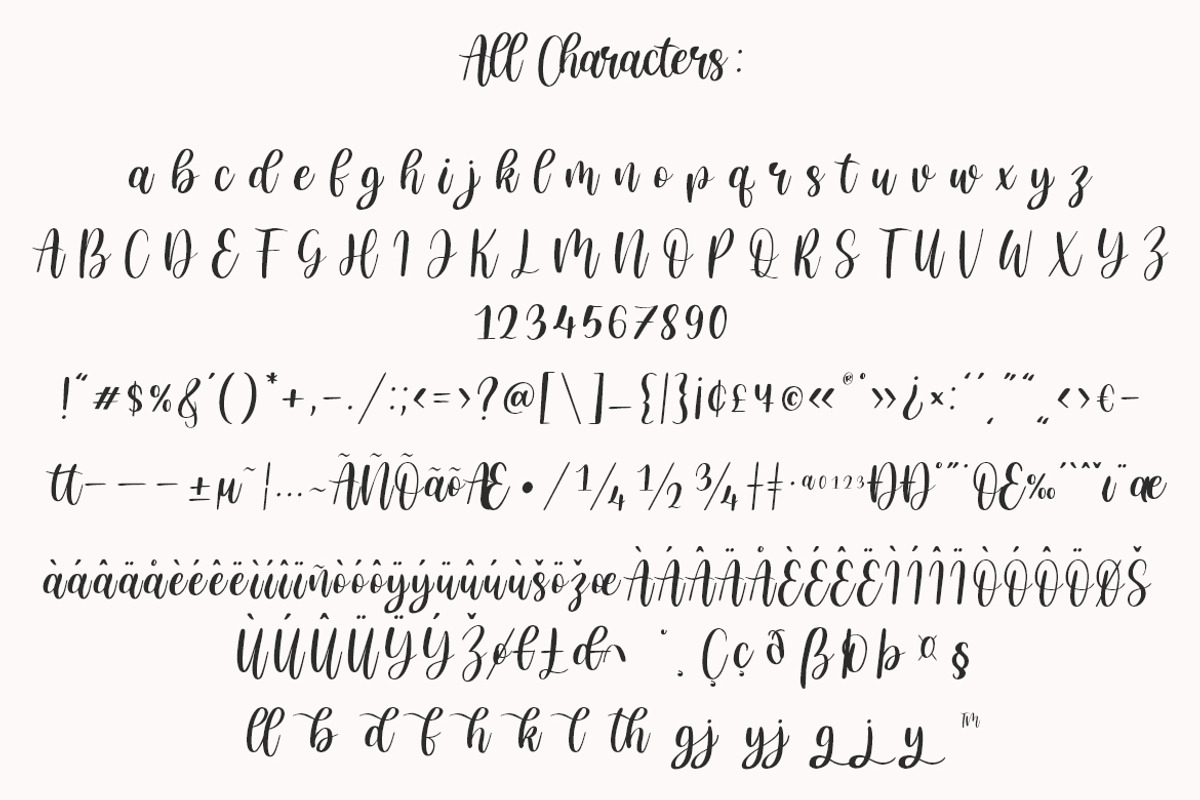 All Characters:
a b c d e f g h i j k l m n o p q r s t u v w x y z
A B C D E F G H I J K L M N O P Q R S T U V W X Y Z
1234567890
!"#$%&'()*+,-./:;<=>?@[\]_{|}¡¢£¥©«®°»¿×:‘’‚“”„‹›€-
tt– — — ±µ~¦…~ÃÑÕãõÆ•/¼½¾†‡·ao0123ÐĐ°”˙ŒE‰´`^ˇı¨æ
àáâäåèéêëìíîïñòóôÿýüûúùšöžœÀÁÂÄÅÈÉÊËÌÍÎÏÒÓÔÖØŠ
ÙÚÛÜŸÝŽøłŁđ¬ ¸. Çç ð ß Þ þ ¤ §
ll b d f h k l th gj yj g j y ™